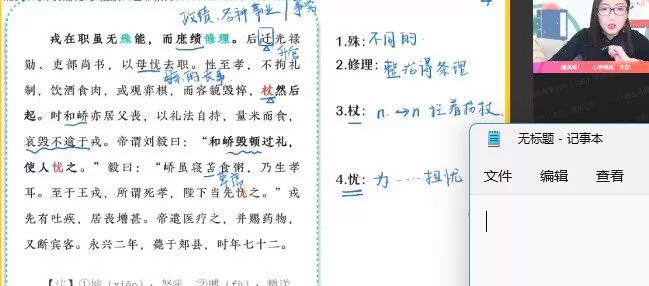 政绩、各种事业
事务
戎在职虽无殊能，而庶绩修理。后迁光禄
升官
勋、吏部尚书，以母忧去职。性至孝，不拘礼
母亲的丧事
制，饮酒食肉，或观弈棋，而容貌毁悴，杖然后
起。时和峤亦居父丧，以礼法自持，量米而食，
哀毁不逾于戎。帝谓刘毅曰：“和峤毁顿过礼，
使人忧之。”毅曰：“峤虽寝苫食粥，乃生孝
草席
耳。至于王戎，所谓死孝，陛下当先忧之。”戎
先有吐疾，居丧增甚。帝遣医疗之，并赐药物，
又断宾客。永兴二年，薨于郏县，时年七十二。
1.殊：不同的
2.修理：整治得条理
3.杖：n.→n 拄着拐杖
4.忧：为……担忧
无标题 - 记事本
文件 编辑 查看